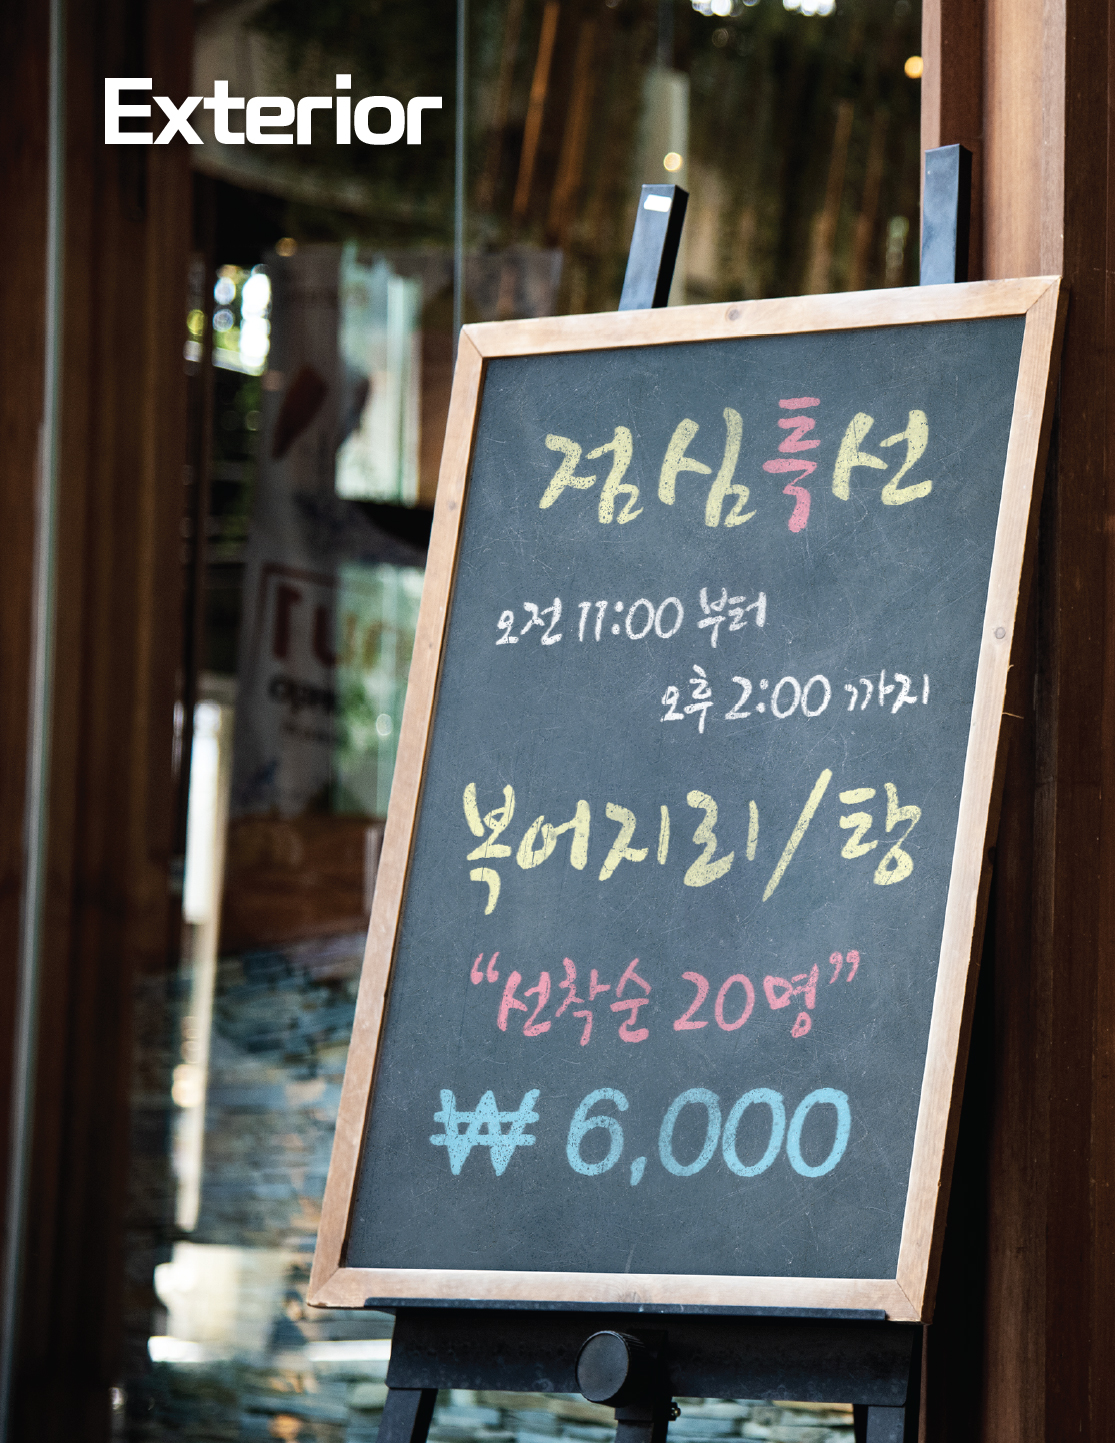 Exterior
점심특선
오전 11:00 부터
오후 2:00 까지
복어지리/탕
“선착순 20명”
₩ 6,000